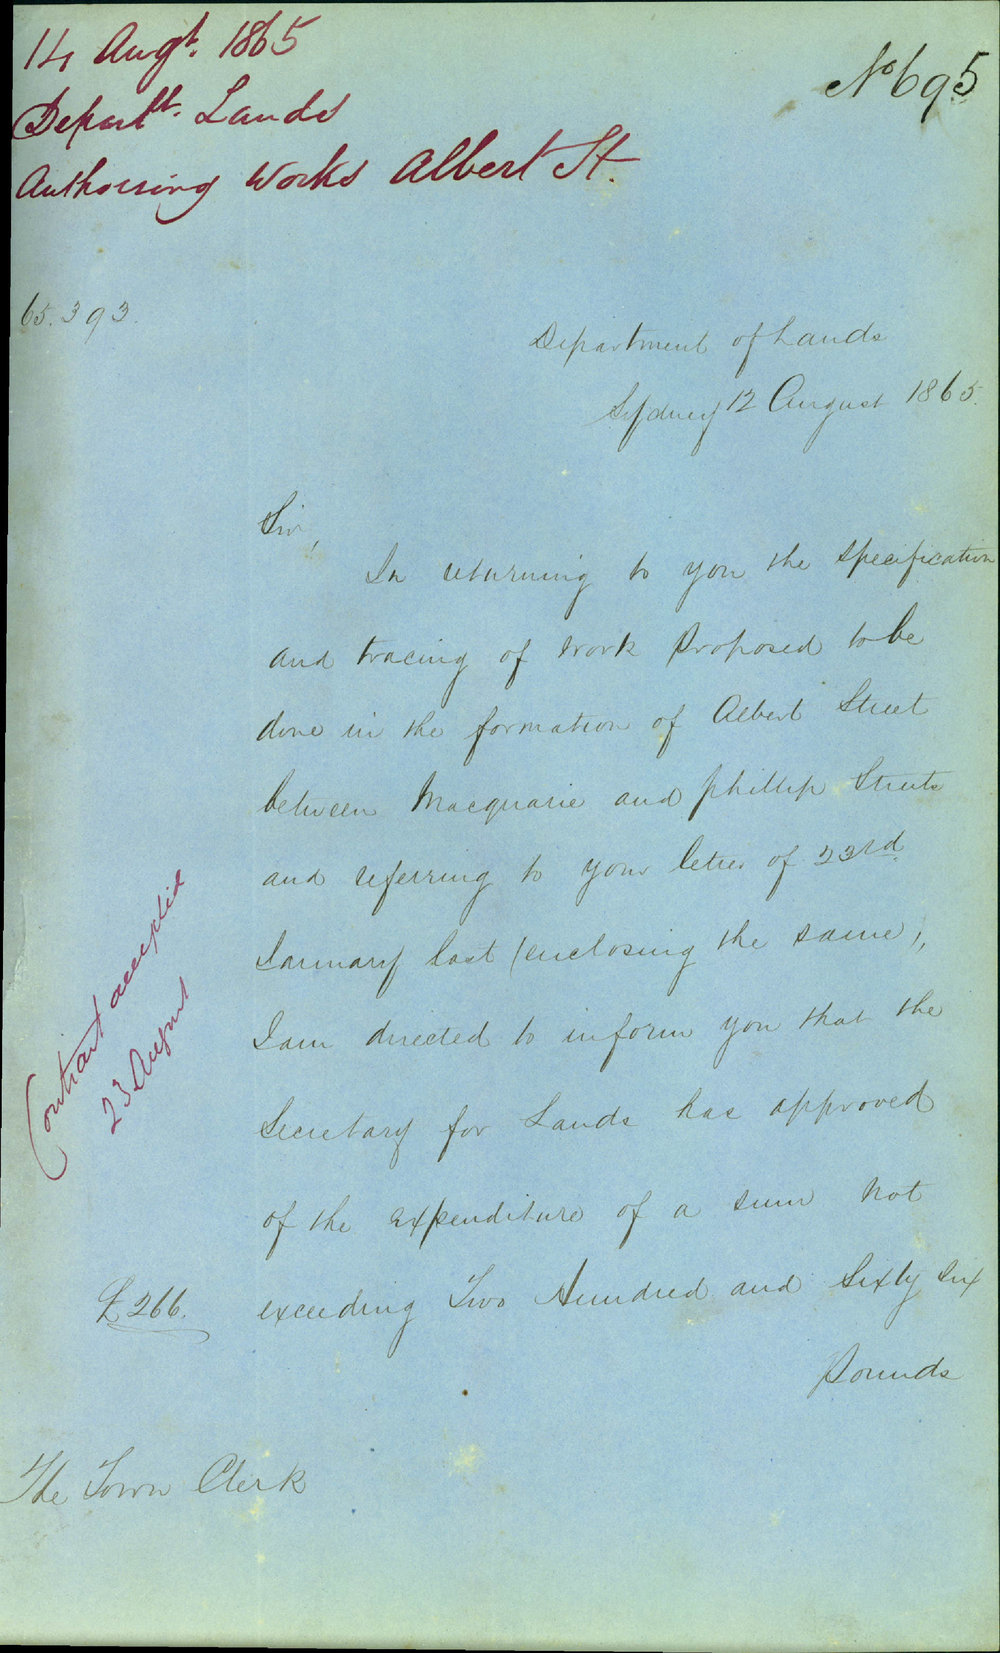 14 Augt. 1865
No 695
Departt. Lands
Authorising Works Albert St.
65.393.
Department of Lands
Sydney 12 August 1865.
Sir,
In returning to you the specification
and tracing of work proposed to be
done in the formation of Albert Street
between Macquarie and Phillip Streets
and referring to your letter of 23rd.
January last (enclosing the same),
I am directed to inform you that the
Secretary for Lands has approved
of the expenditure of a sum not
exceeding Two Hundred and Sixty six
Pounds
Contract accepted
23 August
£266.
The Town Clerk